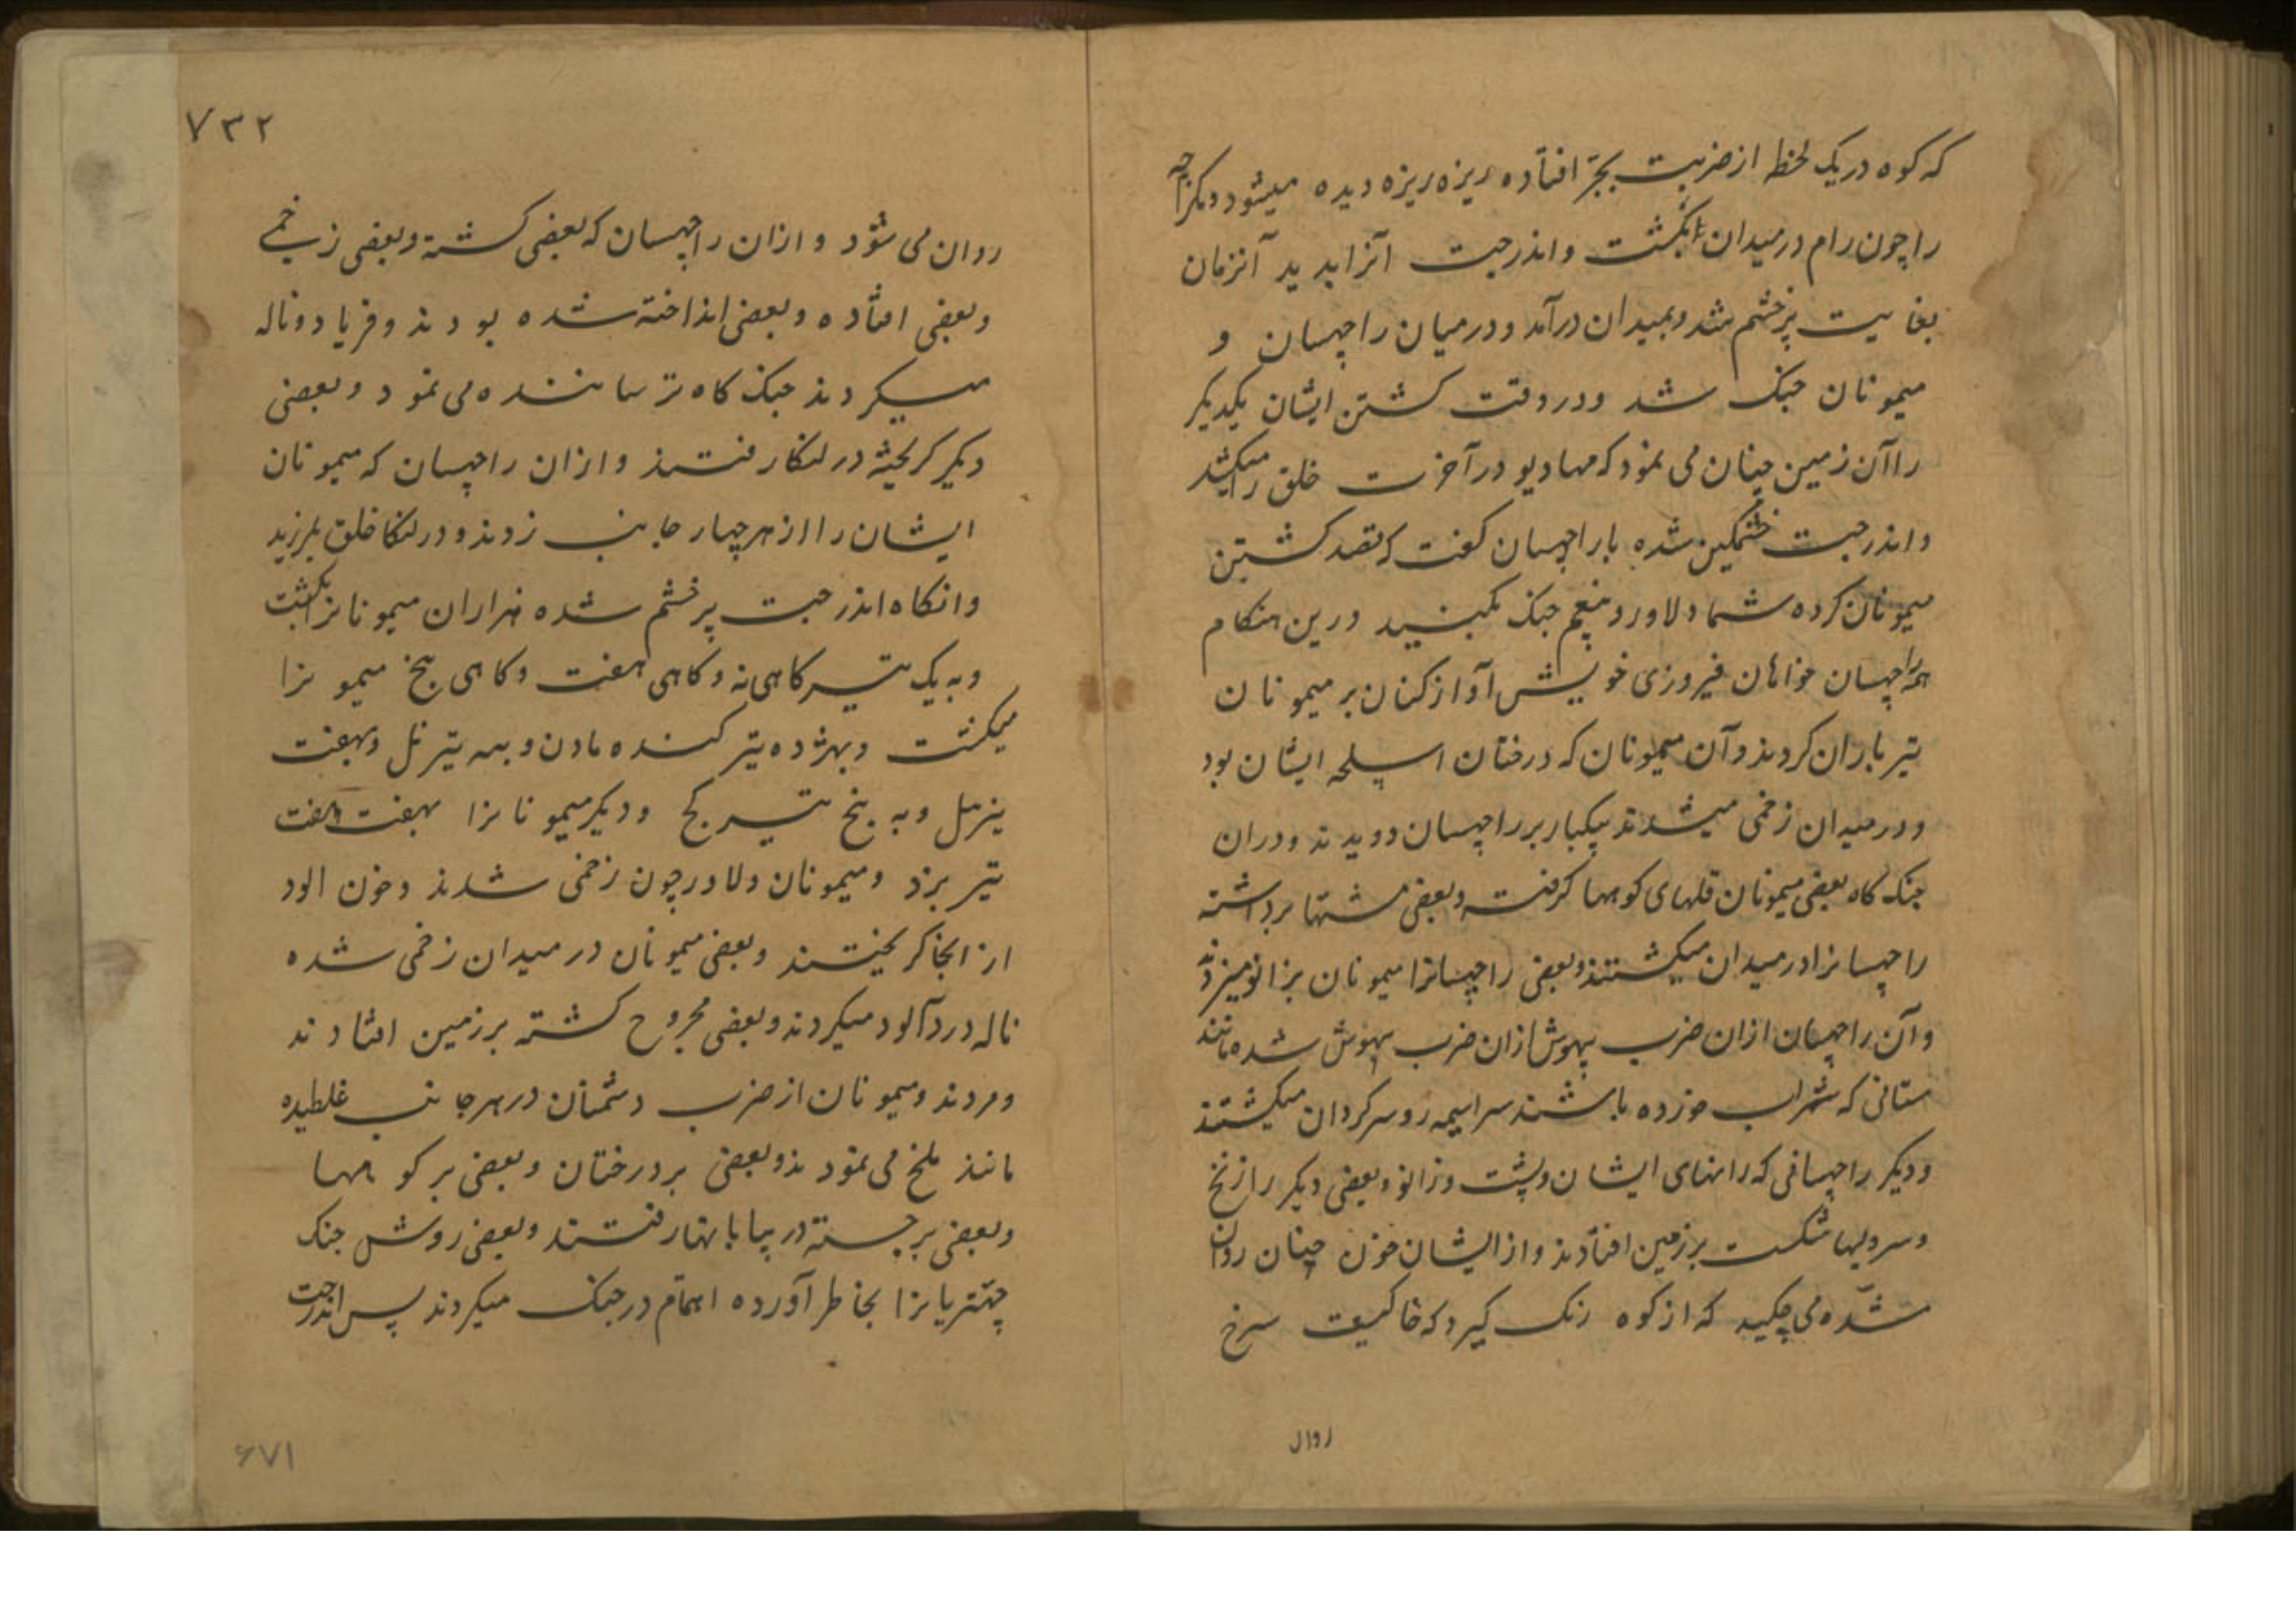 که کوه در یک لحظه از ضربت بجر افتاده ریزه ریزه دیده میشود و مکراچه
را چون رام در میدان بکشت و اندرجت آنرا بدید آنزمان
بغایت پرخشم شد و بمیدان درآمد و درمیان راچهسان و
میمونان جنک شد و در وقت کشتن ایشان یکدیکر
را آن زمین چنان می نمود که مهادیو در آخرت خلق را میکشد
و اندرجت خشمکین شده با راچهسان کفت که قصد کشتن
میمونان کرده شما دلاور و بیغم جنک بکنید درین هنکام
همه راچهسان خواهان فیروزی خویش آواز کنان بر میمونان
تیر باران کردند و آن میمونان که درختان اسلحه ایشان بود
و در میدان زخمی میشدند بیکبار بر راچهسان دویدند و دران
جنک کاه بعضی میمونان قلهای کوهها کرفته و بعضی مشتها برداشته
راچهسانرا در میدان میکشتند و بعضی راچهسانرا میمونان بزانو میزدند
و آن راچهسان ازان ضرب بیهوش ازان ضرب بیهوش شده مانند
مستانی که شراب خورده باشند سراسیمه رو سرکردان میکشتند
و دیکر راچهسانی که رانهای ایشان و پشت و زانو و بعضی دیکر را زنخ
و سر و لبها شکست بر زمین افتادند و از ایشان خون چنان روان
شده می چکید که از کوه رنک کیرد که خاکیست سرخ
روان
۷۳۲
روان می شود و ازان راچهسان که بعضی کشته و بعضی زخمی
و بعضی افتاده و بعضی انداخته شده بودند و فریاد و ناله
میکردند جنک کاه ترساننده می نمود و بعضی
دیکر کریخته در لنکا رفتند و ازان راچهسان که میمونان
ایشان را از هر چهار جانب زدند و در لنکا خلق بلرزید
وانکاه اندرجت پرخشم شده هزاران میمونانرا بکشت
و به یک تیر کاهی نه و کاهی هفت و کاهی پنج میمونرا
میکشت و بهژده تیر کنده مادن و بسه تیر نل و بهفت
تیر میل و به پنج تیر کج و دیکر میمونانرا بهفت هفت
تیر بزد و میمونان دلاور چون زخمی شدند و خون الود
از انجا کریختند و بعضی میمونان در میدان زخمی شده
ناله دردآلود میکردند و بعضی مجروح کشته بر زمین افتادند
و مردند و میمونان از ضرب دشمنان در هر جانب غلطیده
مانند ملخ می نمودند و بعضی بر درختان و بعضی بر کوهها
و بعضی برجسته در بیابانها رفتند و بعضی روش جنک
چهتریانرا بخاطر آورده اهتمام در جنک میکردند پس اندرجت
۶۷۱